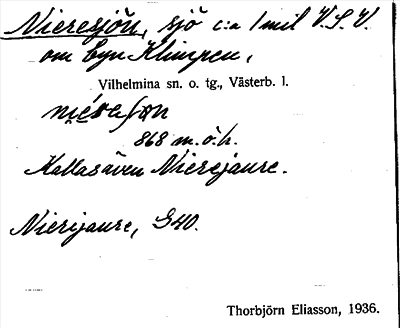 Nieresjön, sjö c:a 1 mil V.S.V.
om byn Klimpen,
Vilhelmina sn. o. tg., Västerb. l.
868 m.ö.h.
Kallas även Nierejaure.
Nierijaure, G40.
Thorbjörn Eliasson, 1936.